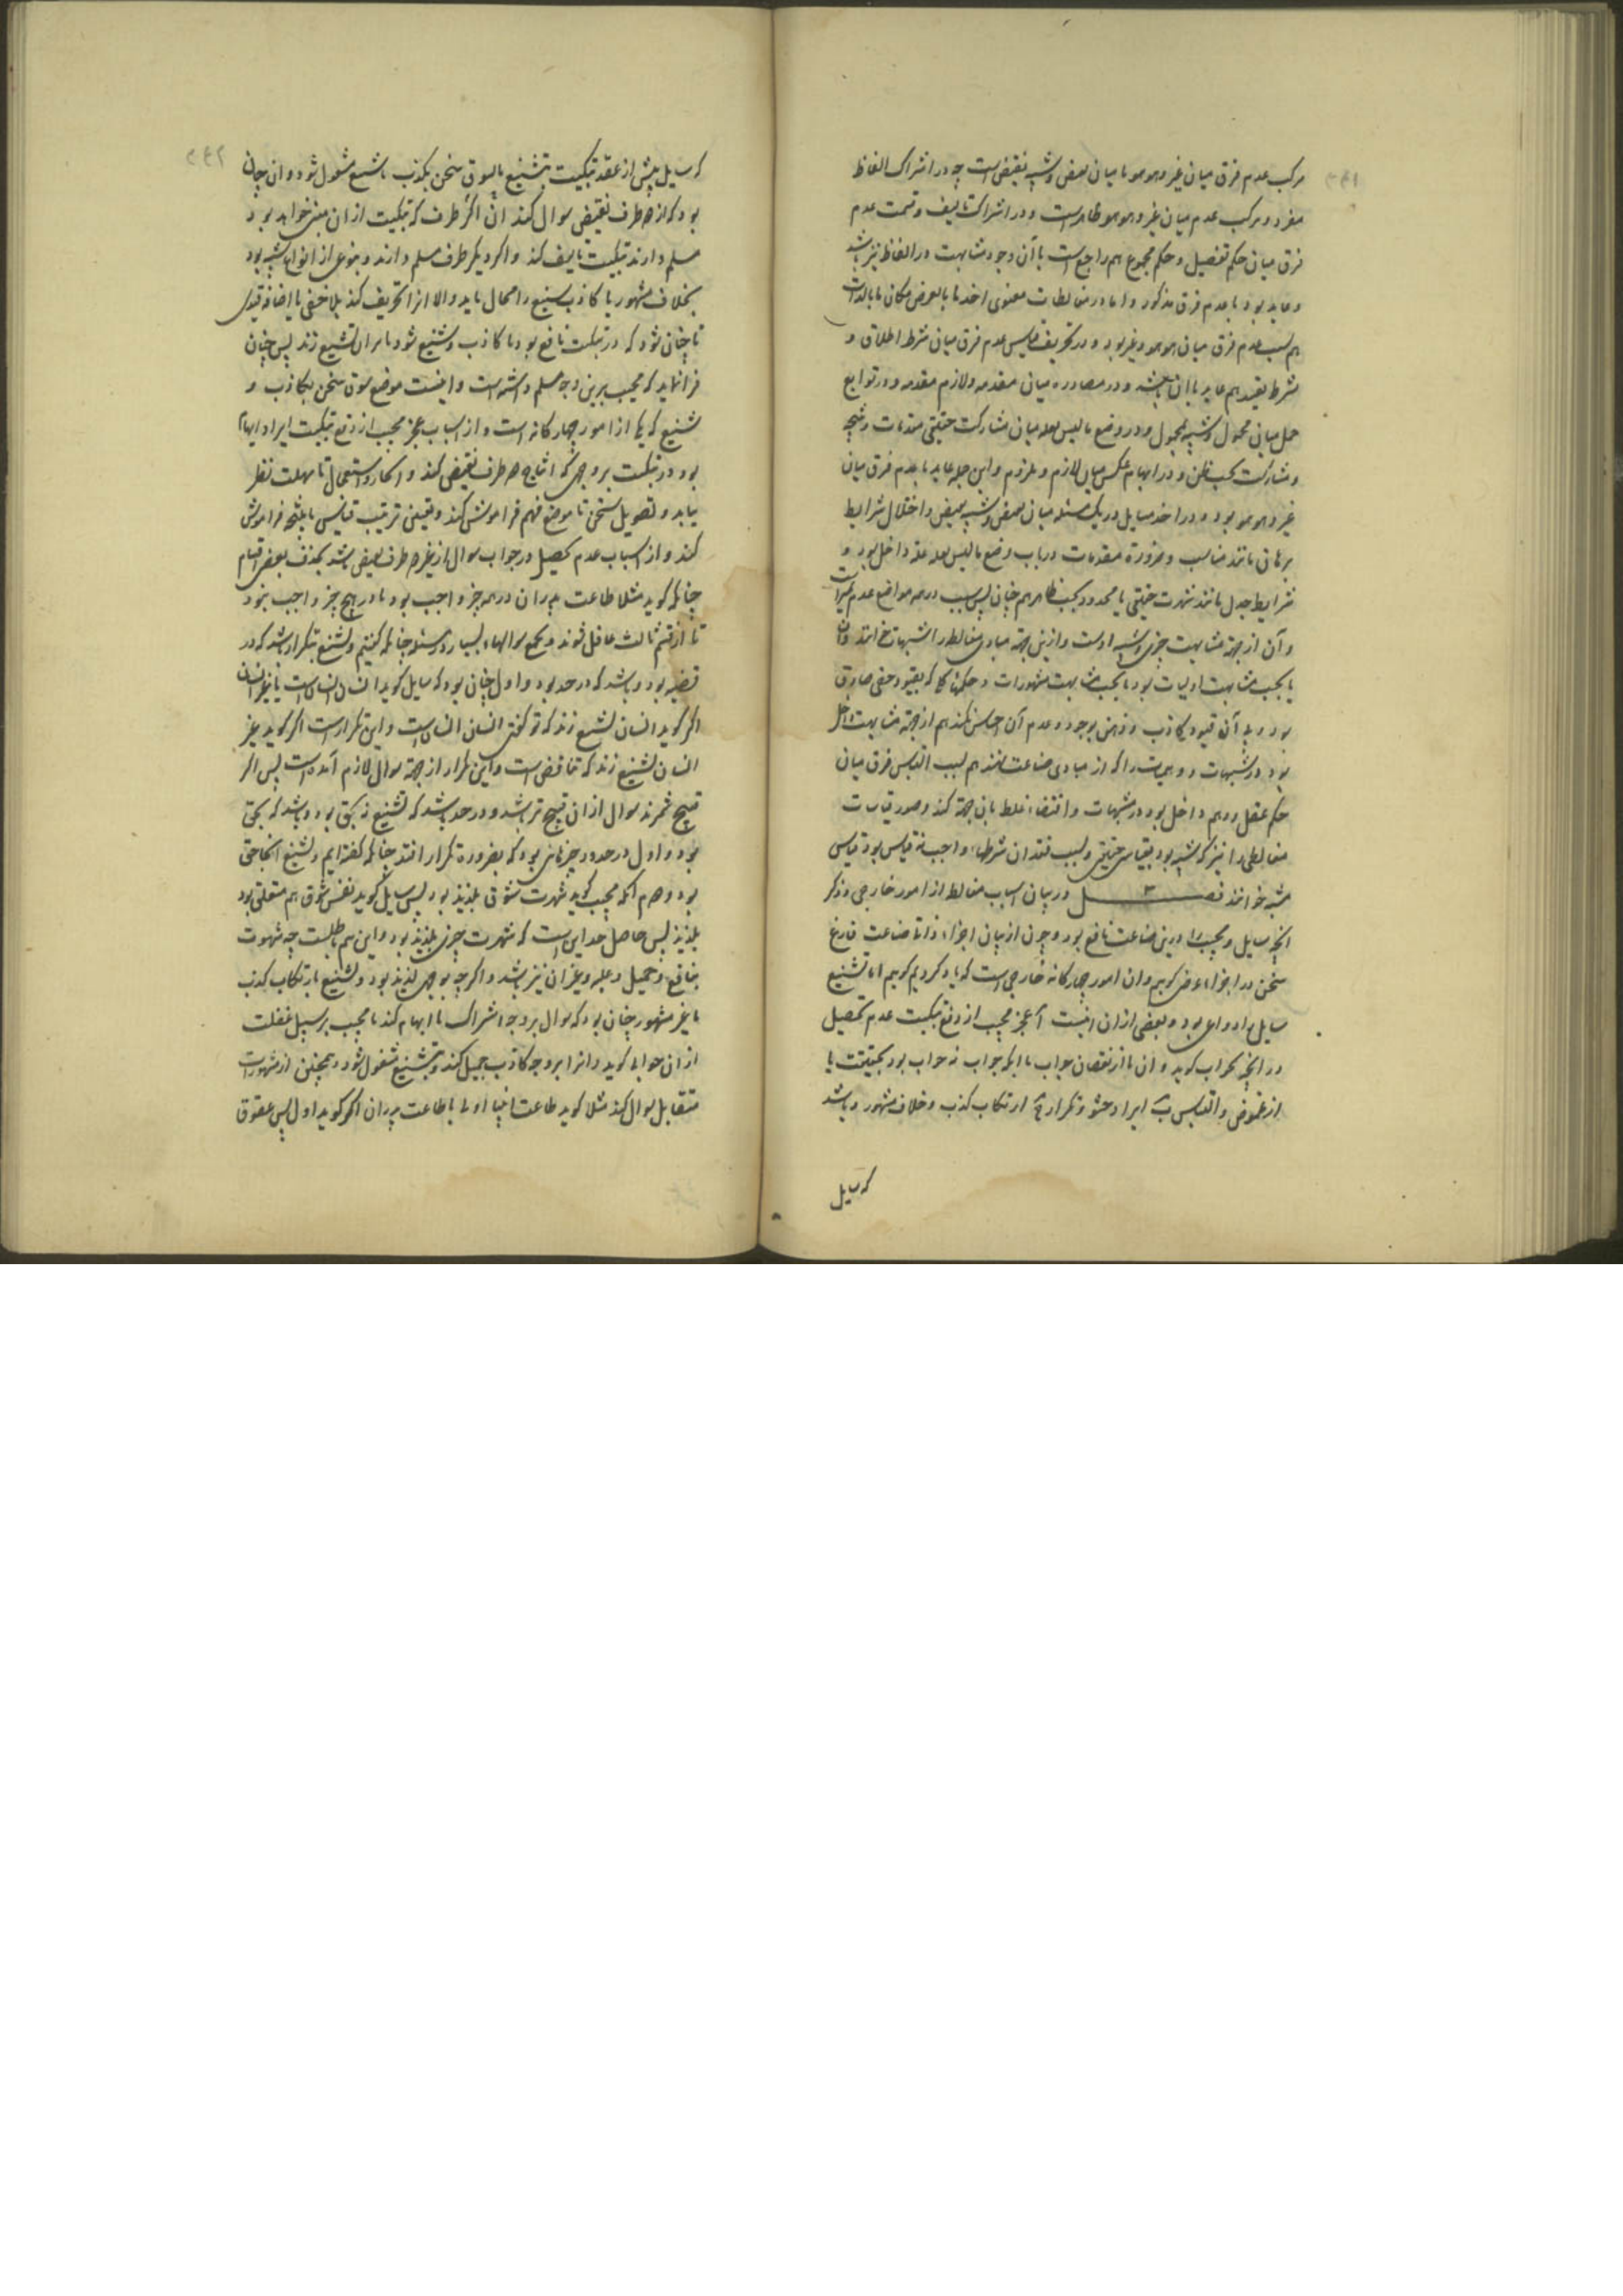 مرکب عدم فرق میان غیر و هوهو یا میان نقیض و شبیه نقیض است چه در اشتراک الفاظ
مفرد و مرکب عدم میان غیر و هوهو ظاهر است و در اشتراک تالیف و قسمت عدم
فرق میان حکم تفصیل و حکم مجموع هم راجع است با آن وجود مشابهت در الفاظ نیز باشد
و عاید بود با عدم فرق مذکور و اما در مغالطات معنوی اخذ ما بالعرض مکان ما بالذات
هم بسبب عدم فرق میان هوهو و غیر بود و در تحریف قیاس عدم فرق میان شرط اطلاق و
شرط تقیید هم عاید با آن باشد و در مصادره میان مقدمه و لازم مقدمه و در توابع
حمل میان محمول و شبیه بمحمول و در وضع ما لیس بعله میان مشارکت حقیقی مقدمات و نتیجه
و مشارکت بحسب ظن و در ایهام عکس میان لازم و ملزوم و این جمله عاید با عدم فرق میان
غیر و هوهو بود و در اخذ مسایل در یک مسئله میان نقیض و شبیه بنقیض و اختلال شرایط
برهانی مانند مناسب و ضرورة مقدمات در باب وضع ما لیس بعله علة داخل بود و
شرایط جدل مانند شهرت حقیقی یا محدود بحسب ظاهر هم چنان پس سبب در همه مواضع عدم تمیز است
و آن از جهة مشابهت چیزی و شبیه اوست و ازین جهة مبادی مغالطه را مشبهات خوانند و آن
یا بحسب مشابهت اولیات بود یا بحسب مشابهت مشهورات و حکمهائی که بقیود خفی صادق
بود و بی آن قیود کاذب و ذهن بوجود و عدم آن احساس نکند هم از جهة مشابهت داخل
بود در مشبهات و وهمیات را که از مبادی صناعت نهند هم بسبب التباس فرق میان
حکم عقل و وهم داخل بود در مشبهات و اقتضاء غلط بان جهة کند و صور قیاسات
مغالطی را نیز که شبیه بود بقیاس حقیقی و بسبب فقدان شرطهاء واجب نه قیاس بود قیاس
مشبه خوانند فصل ۳ در بیان اسباب مغالطه از امور خارجی و ذکر
انچه سایل و مجیب را درین صناعت نافع بود و چون از بیان اجزاء ذاتی صناعت فارغ
سخن در اجزاء عرضی گوییم و ان امور چهارگانه خارجی است که یاد کردیم گوییم اما تشنیع
سایل را دواعی بود و بعضی از ان اینست آ عجز مجیب از دفع تبکیت عدم تحصیل
در انچه بجواب گوید و ان یا از نقصان جواب یا انکه جواب نه جواب بود بحقیقت یا
از غموض و التباس ب ایراد حشو و تکرار ج ارتکاب کذب و خلاف مشهور و باشد
که سایل
که سایل پیش از عقد تبکیت بتشنیع یا بسوق سخن بکذب یا شنیع مشغول شود و ان چنان
بود که از هر طرف نقیض سوال کند ان اگر طرف که تبکیت از ان مبنی خواهد بود
مسلم دارند تبکیت تالیف کند و اگر دیگر طرف مسلم دارند و بنوعی از انواع شبیه بود
بخلاف مشهور یا کاذب شنیع را محال یابد والا انرا تحریف کند بلاحقی یا اضافه قیدی
تا چنان شود که در تبکیت نافع بود یا کاذب و شنیع شود تا بران تشنیع زند پس چنان
فرا نماید که مجیب برین وجه مسلم داشته است و اینست موضع سوق سخن بکاذب و
شنیع که یکی از امور چهارگانه است و از اسباب عجز مجیب از دفع تبکیت ایراد ایهام
بود در تبکیت بر وجهی که انتاج هر طرف نقیض کند و انکار و استعمال تا مهلت نظر
نیابد و تطویل سخن تا موضع فهم فراموش کند و تغییر ترتیب قیاس تا نتیجه فراموش
کند و از اسباب عدم تحصیل در جواب سوال از غیر طرف نقیض باشد بحذف بعضی اقسام
چنانکه گوید مثلا طاعت پدران در همه چیز واجب بود یا در هیچ چیز واجب نبود
تا از قسم ثالث غافل شوند و بجمع سوالهاء بسیار در مسئله چنانکه گفتیم و تشنیع بتکرار باشد که در
قضیه بود و باشد که در حد بود و اول چنان بود که سایل گوید انسان انسان است یا غیر انسان
اگر گوید انسان تشنیع زند که تو گفتی انسان انسان است و این تکرار است اگر گوید غیر
انسان تشنیع زند که تناقض است و این تکرار از جهة سوال لازم آمده است پس اگر
قبیح شمرند سوال از ان قبیح تر باشد و در حد باشد که تشنیع نه بحق بود و باشد که بحق
بود و اول در حدود چیزهائی بود که بضرورة تکرار افتد چنانکه گفته ایم و تشنیع انجا حق
بود دوم آنکه مجیب گوید شهوت شوق بلذیذ بود پس سایل گوید نفس شوق هم متعلق بود
بلذیذ پس حاصل حد این است که شهوت چیزی بلذیذ بود و این هم باطلست چه شهوت
بنافع و جمیل و غلبه و غیر ان نیز باشد و اگرچه بوجهی لذیذ بود و تشنیع بارتکاب کذب
یا غیر مشهور چنان بود که سوال بر وجه اشتراک یا ابهام کند تا مجیب بر سبیل غفلت
از ان جوابی گوید و انرا بر وجه کاذب حمل کند و بتشنیع مشغول شود و همچنین از مشهورات
متقابل سوال کند مثلا گوید طاعت انبیا اولی یا طاعت پدران اگر گوید اول پس عقوق